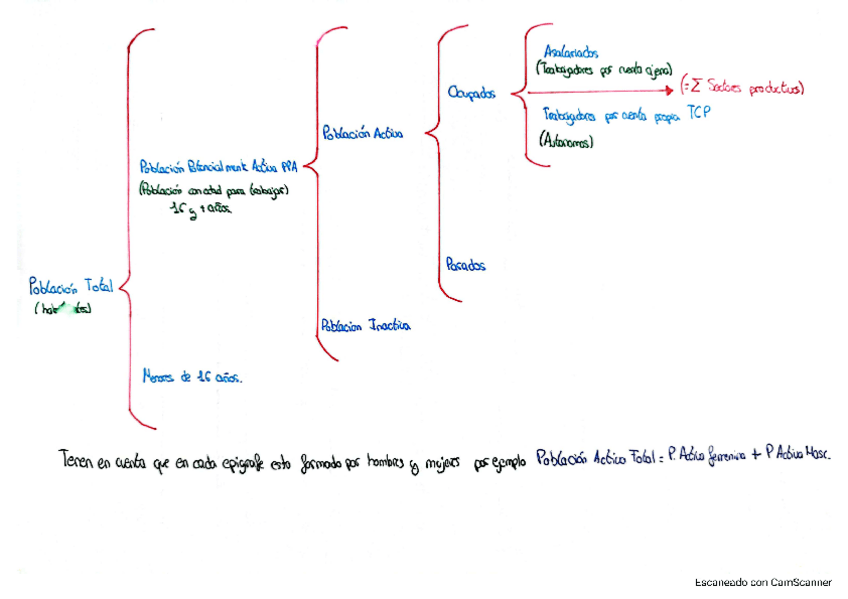 Asalariados
(Trabajadores por cuenta ajena)
(=Σ Sectores productivos)
Ocupados
Trabajadores por cuenta propia TCP
(Autonomos)
Población Activa
Población Potencialmente Activa PPA
(Población con edad para trabajar)
16 y + años.
Parados
Población Total
Población Inactiva
Menores de 16 años.
Tener en cuenta que en cada epigrafe esto formado por hombres y mujeres por ejemplo Población Activa Total = P. Activa femenina + P Activa Masc.
Escaneado con CamScanner